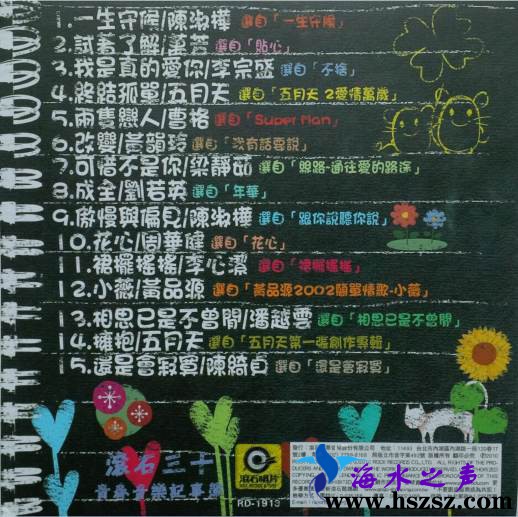 1.一生守候/陳淑樺 選自「一生守候」
2.試著了解/萬芳 選自「貼心」
3.我是真的愛你/李宗盛 選自「不捨」
4.終結孤單/五月天 選自「五月天 2愛情萬歲」
5.兩隻戀人/曹格 選自「Super Man」
6.改變/黃韻玲 選自「沒有話要說」
7.可惜不是你/梁靜茹 選自「絲路-通往愛的路途」
8.成全/劉若英 選自「年華」
9.傲慢與偏見/陳淑樺 選自「跟你說聽你說」
10.花心/周華健 選自「花心」
11.裙襬搖搖/李心潔 選自「裙襬搖搖」
12.小薇/黃品源 選自「黃品源2002簡單情歌-小薇」
13.相思已是不曾閒/潘越雲 選自「相思已是不曾閒」
14.擁抱/五月天 選自「五月天第一張創作專輯」
15.還是會寂寞/陳綺貞 選自「還是會寂寞」
滾石三十
青春音樂記事簿
滾石唱片
RD-1913
海水之声
www.hszsz.com